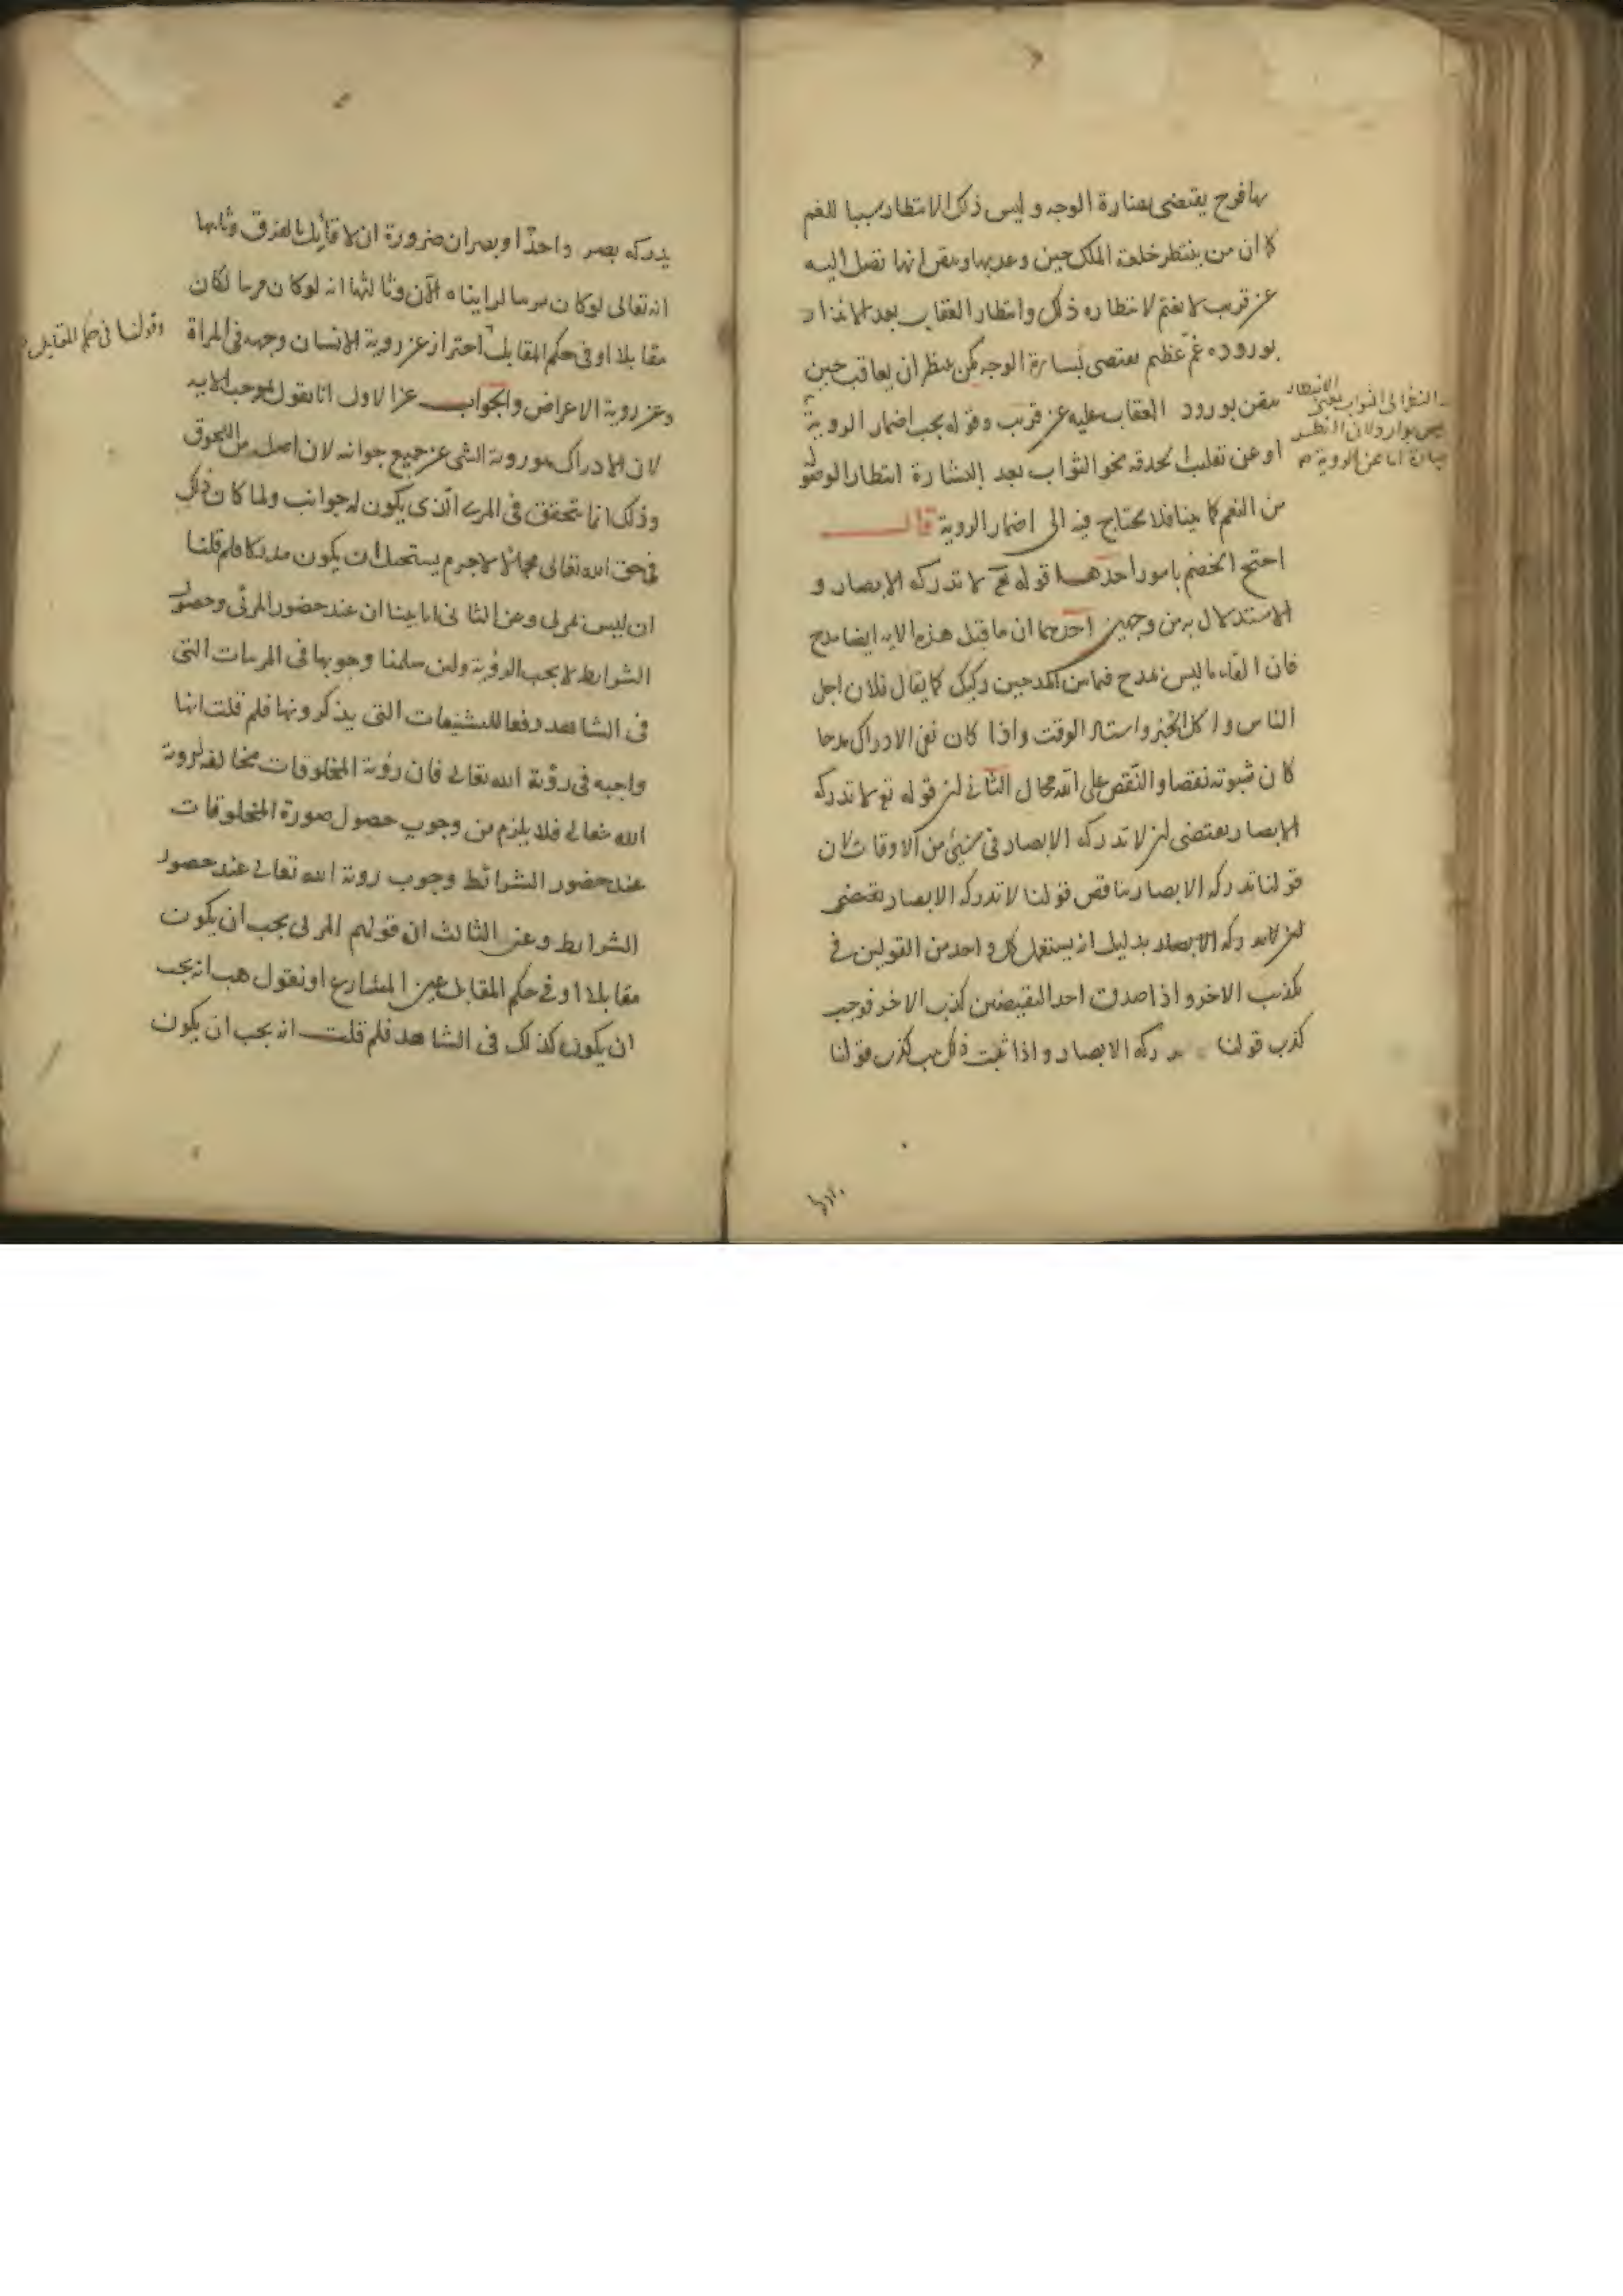 بها فرح يقتضى نضارة الوجه وليس ذلك الانتظار سببا للغم
لان من ينتظر خلعة الملك حين وعد بها وتيقن انها تصل اليه
عن قريب لا يغتم لانتظاره ذلك وانتظار العقاب بعد الانذار
بوروده غم عظيم يقتضى بسارة الوجه كمن ينتظر ان يعاقب حين
تيقن بورود العقاب عليه عن قريب وقوله يجب اضمار الروية
او عن تقليب الحدقة نحو الثواب بعد البشارة انتظار الوصول
من النعم كما بينا فلا يحتاج فيه الى اضمار الروية قال
احتج الخصم بامور احدها قوله تع لا تدركه الابصار و
الاستدلال به من وجهين احدهما ان ما قبل هذه الاية ايضا مدح
فان القاء ما ليس بمدح فيما بين المدحين ركيك كما يقال فلان اجل
الناس واكل الخبز واستاد الوقت واذا كان نفى الادراك مدحا
كان ثبوته نقصا والنقص على الله محال الثانى ان قوله تع لا تدركه
الابصار يقتضى ان لا تدركه الابصار فى شيئ من الاوقات لان
قولنا تدركه الابصار يناقض قولنا لا تدركه الابصار يقتضى
ان لا تدركه الابصار بدليل انه يستعمل كل واحد من القولين فى
تكذيب الاخر واذا صدق احد النقيضين كذب الاخر فوجب
كذب قولنا تدركه الابصار واذا ثبت ذلك كذب قولنا
النظر الى الثواب بمعنى الانتظار
ليس بوارد لان النظر
عبارة اما عن الروية
يدركه بصر واحد او بصران ضرورة ان لا قايل بالفرق وثانيها
انه تعالى لو كان مرئيا لرايناه الآن وثالثها انه لو كان مرئيا لكان
مقابلا او فى حكم المقابل احتراز عن روية الانسان وجهه فى المراة
وعن روية الاعراض والجواب عن الاول انا نقول بموجب الاية
لان الادراك هو روية الشى عن جميع جوانبه لان اصله من اللحوق
وذلك انما يتحقق فى المرئى الذى يكون له جوانب ولما كان ذلك
فى حق الله تعالى محالا لا جرم يستحيل ان يكون مدركا فلم قلنا
ان ليس بمرئى وعن الثانى انا بينا ان عند حضور المرئى وحصول
الشرايط لا يجب الرؤية ولئن سلمنا وجوبها فى المرئيات التى
فى الشاهد دفعا للتشنيعات التى يذكرونها فلم قلت انها
واجبه فى رؤية الله تعالى فان رؤية المخلوقات مخالفة لروية
الله تعالى فلا يلزم من وجوب حصول صورة المخلوقات
عند حضور الشرائط وجوب روية الله تعالى عند حصول
الشرايط وعن الثالث ان قولهم المرئى يجب ان يكون
مقابلا او فى حكم المقابل عين المتنازع او نقول هب انه يجب
ان يكون كذلك فى الشاهد فلم قلت انه يجب ان يكون
وقولنا فى حكم المقابل